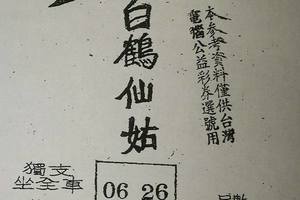 本參考資料僅供台灣
電腦公益彩券選號用
白鶴仙姑
獨支
坐全車
06 26